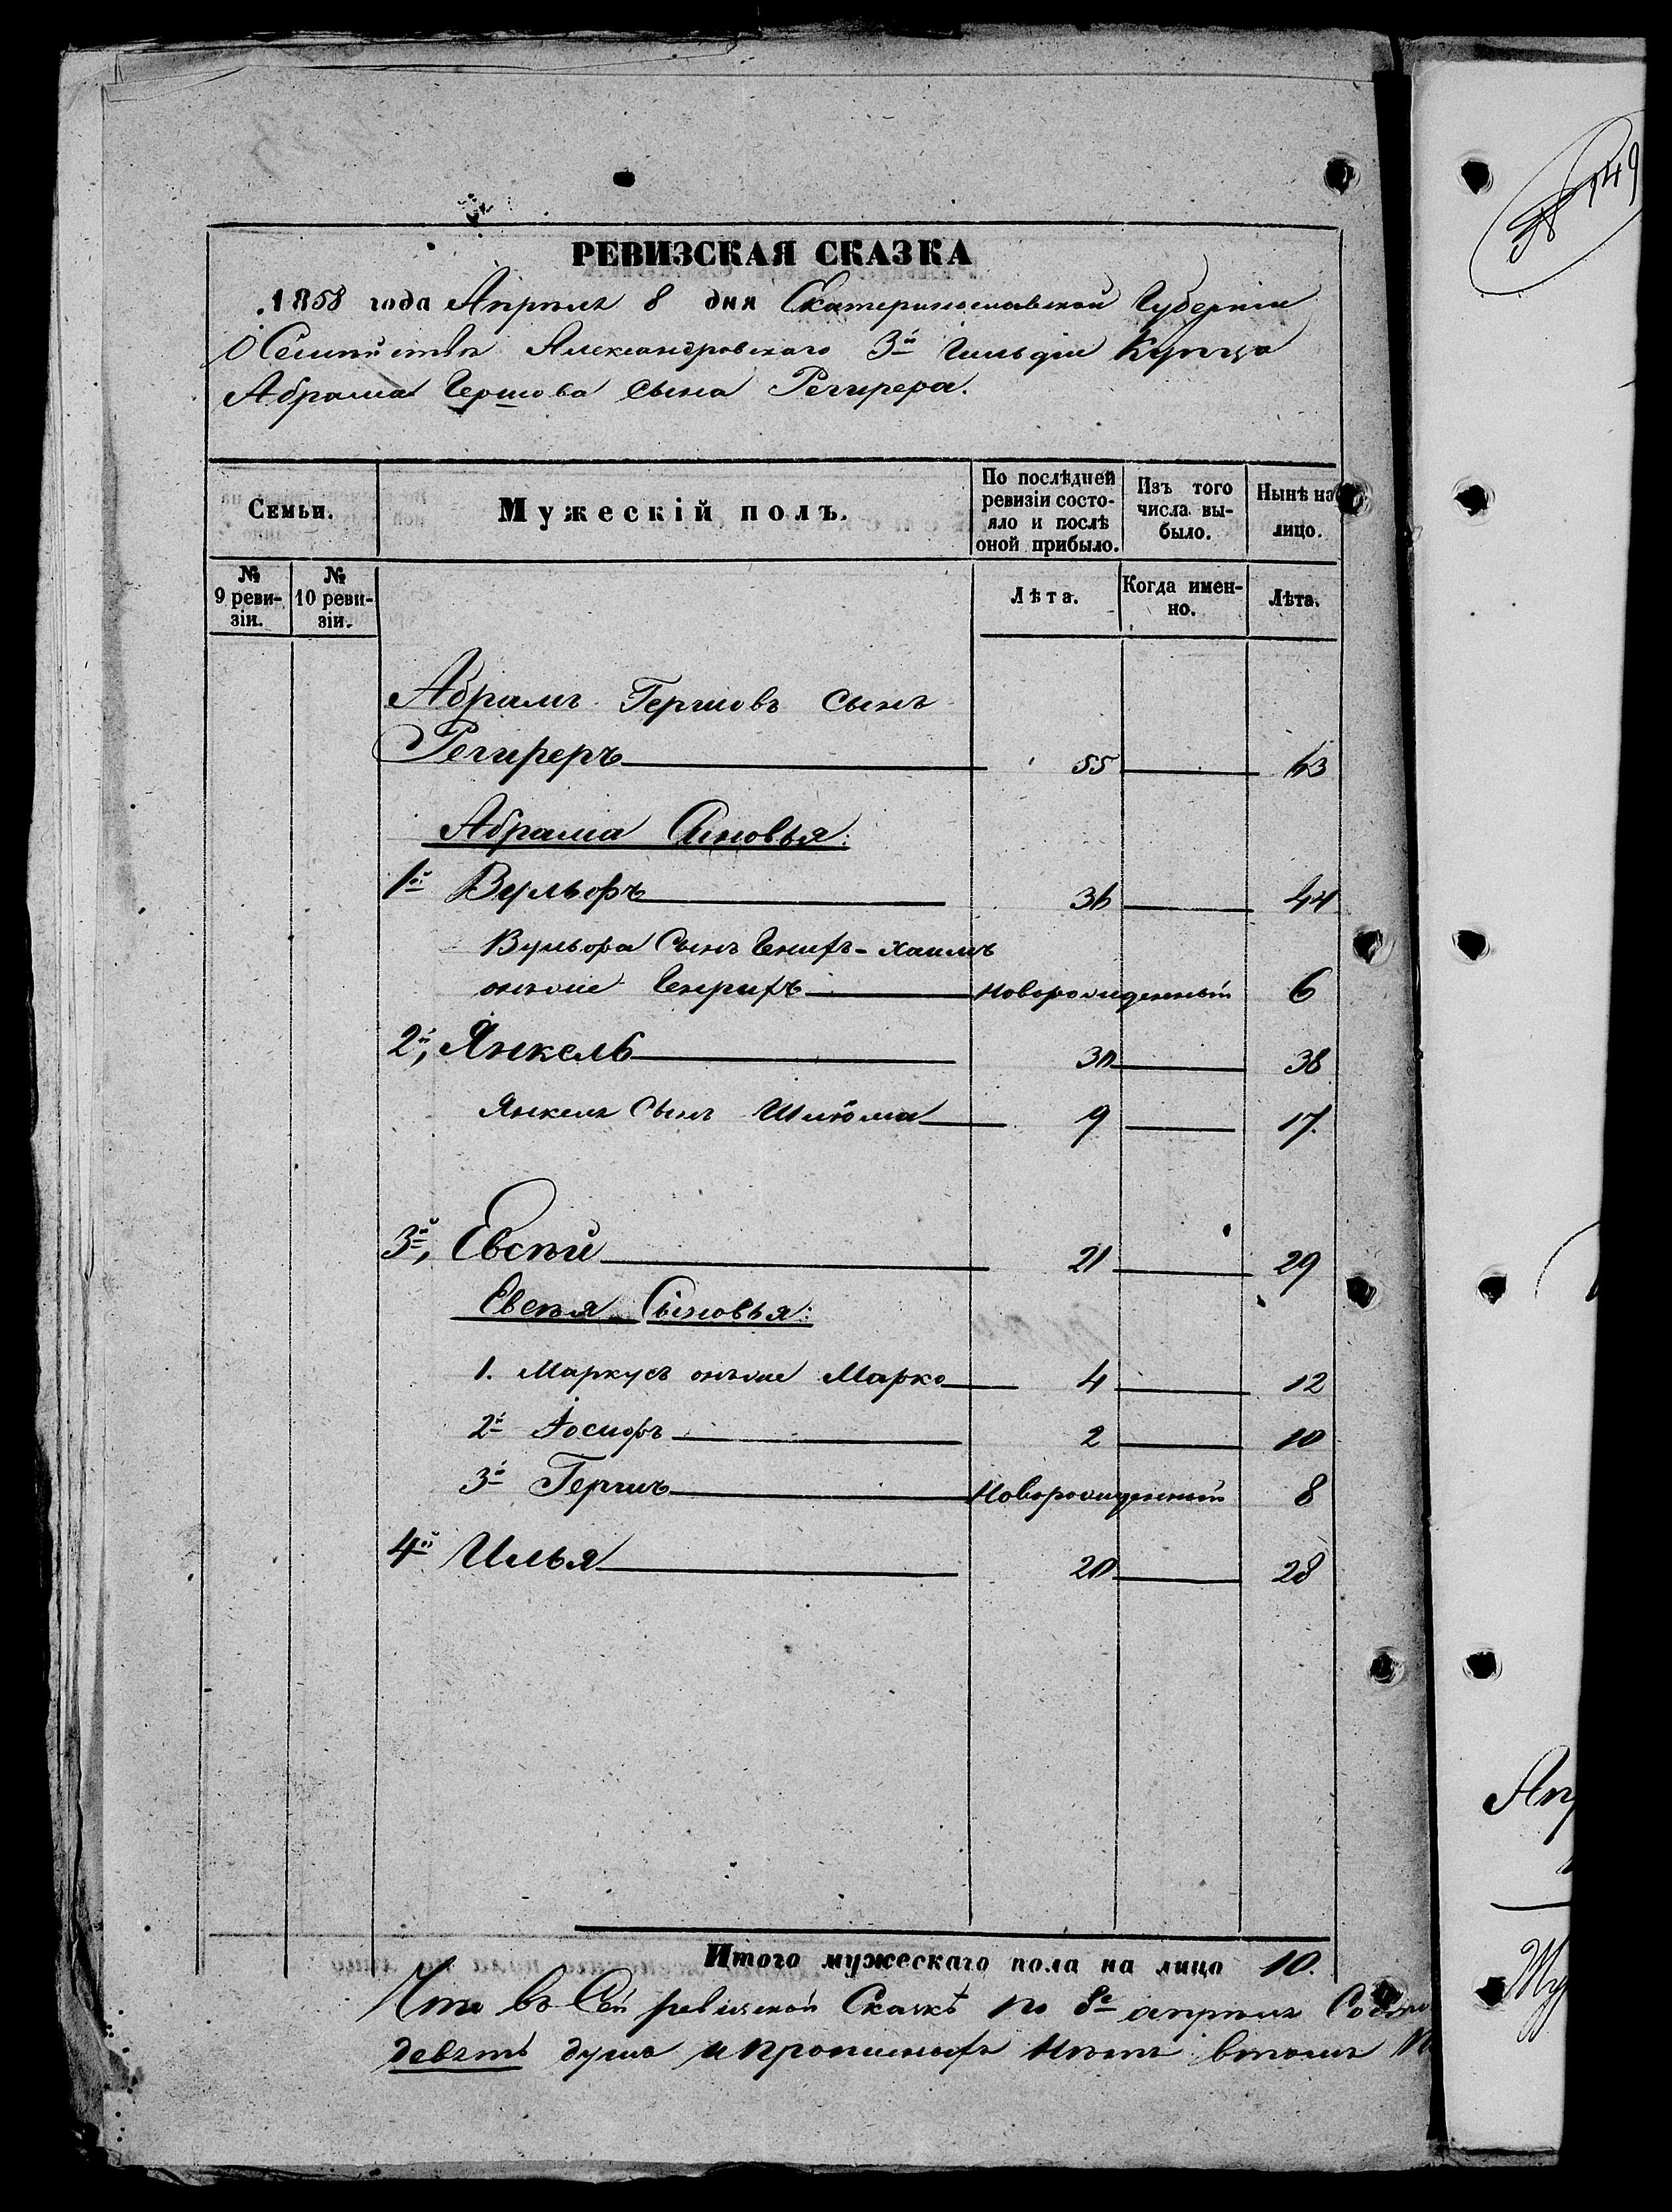 149
РЕВИЗСКАЯ СКАЗКА
1858 года Апрѣля 8 дня Екатеринославской Губерніи
О Семѣйствѣ Александровскаго 3й Гильдіи Купца
Абрама Гершова сына Регирера.
Семьи.
Мужескій полъ.
По послѣдней ревизіи состояло и послѣ оной прибыло.
Изъ того числа выбыло.
Нынѣ на лицо.
№ 9 ревизіи.
№ 10 ревизіи.
Лѣта.
Когда именно.
Лѣта.
Абрамъ Гершовъ сынъ
Региреръ 55 63
Абрама Сыновья:
1й Вульфъ 36 44
Вульфа Сынъ Хаимъ
онъже новорожденный 6
2й, Янкель 30 38
Янкеля Сынъ Шлёма 9 17.
3й, Евсѣй 21 29
Евсѣя Сыновья:
1. Маркусъ онъже Марко 4 12
2й Іосифъ 2 10
3й Гершъ Новорожденный 8
4й Илья 20 28
Итого мужескаго пола на лицо 10.
Что въ Сей ревизской Сказкѣ по 8е апрѣля
девять душъ и прописныхъ нѣтъ втомъ
Ап